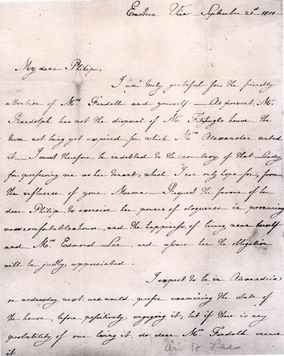 Virg September 21st 1811
My dear Philip,
I am truly grateful for the friendly
attention of Mrs Fendall and yourself — At present, Mr
Randolph has not the disposal of Mr Fitzhughs house. the
term not being yet expired for which Mrs Alexander rented
it — I must therefore be indebted to the courtesy of that Lady
for professing me as her tenant, which I can only hope for, from
the influence of your Mama — Request the favour of her
dear Philip to exercise her powers of eloquence in procuring
me comfortable abode, and the happiness of living near herself
and Mrs Edmund Lee, and assure her the obligation
will be justly appreciated.
I expect to be in Alexandria
on wednesday next, and would prefer examining the state of
the house, before, positively, engaging it; but if there is any
probability of one losing it, do, dear Mrs Fendall secure
it
Lee